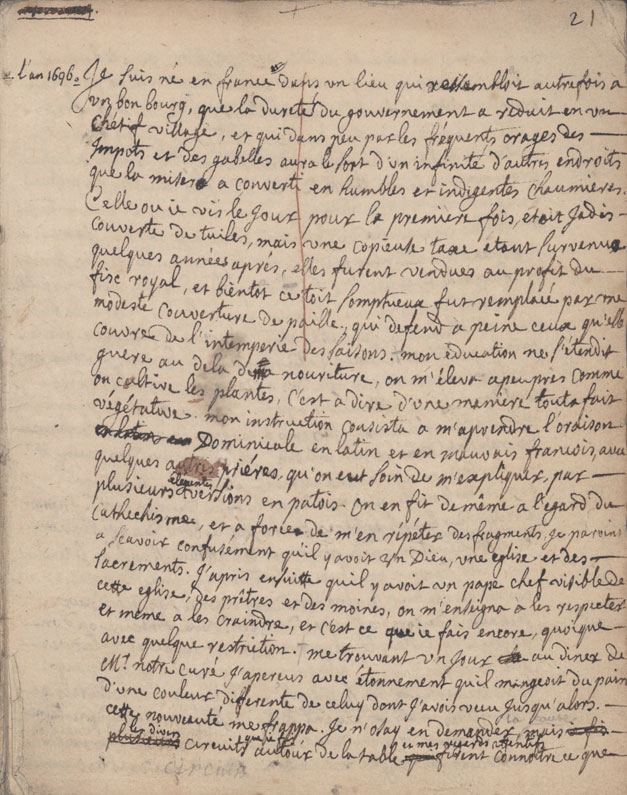 21
l'an 1696. Je suis né en france dans un lieu qui ressembloit autrefois a
un bon bourg, que la dureté du gouvernement a reduit en un
chétif village, et qui dans peu par les fréquents orages des
impots et des gabelles aura le sort d'un infinité d'autres endroits
que la misere a converti en humbles et indigentes chaumieres.
Celle ou ie vis le Jour pour la premiere fois, étoit Jadis
couverte de tuiles, mais une copieuse taxe étant survenue
quelques années aprés, elles furent vendues au profit du
fisc royal, et bientot ce toit somptueux fut remplacé par une
modeste couverture de paille, qui defend a peine ceux qu'elle
couvre de l'intemperie des saisons. mon education ne s'étendit
guere au dela de ma nouriture, on m'éleva a peu prés comme
on cultive les plantes, C'est a dire d'une meniere tout a fait
végétative. mon instruction consista a m'aprendre l'oraison
Dominicale en latin et en mauvais francois, avec
quelques autres priéres, qu'on eut soin de m'expliquer, par
plusieurs elegantes versions en patois. On en fit de même a l'egard du
Cathechisme, et a force de m'en répéter des fragments, Je parvins
a scavoir confusément qu'il y avoit un Dieu, une eglise et des
sacrements. J'apris ensuitte qu'il y avoit un pape chef visible de
cette eglise, des prêtres et des moines, on m'enseigna a les respecter
et même a les craindre, et c'est ce que ie fais encore, quoique
avec quelque restriction. me trouvant un Jour au diner de
Mr. notre curé J'apercus avec étonnement qu'il mangeoit du pain
d'une couleur differente de celuy dont J'avois veu Jusqu'alors.
cette nouveauté me frappa. Je n'osay en demander la cause, mais
les divers circuits que je fis autour de la table et mes regards attentifs furent connoitre ce que
circuits